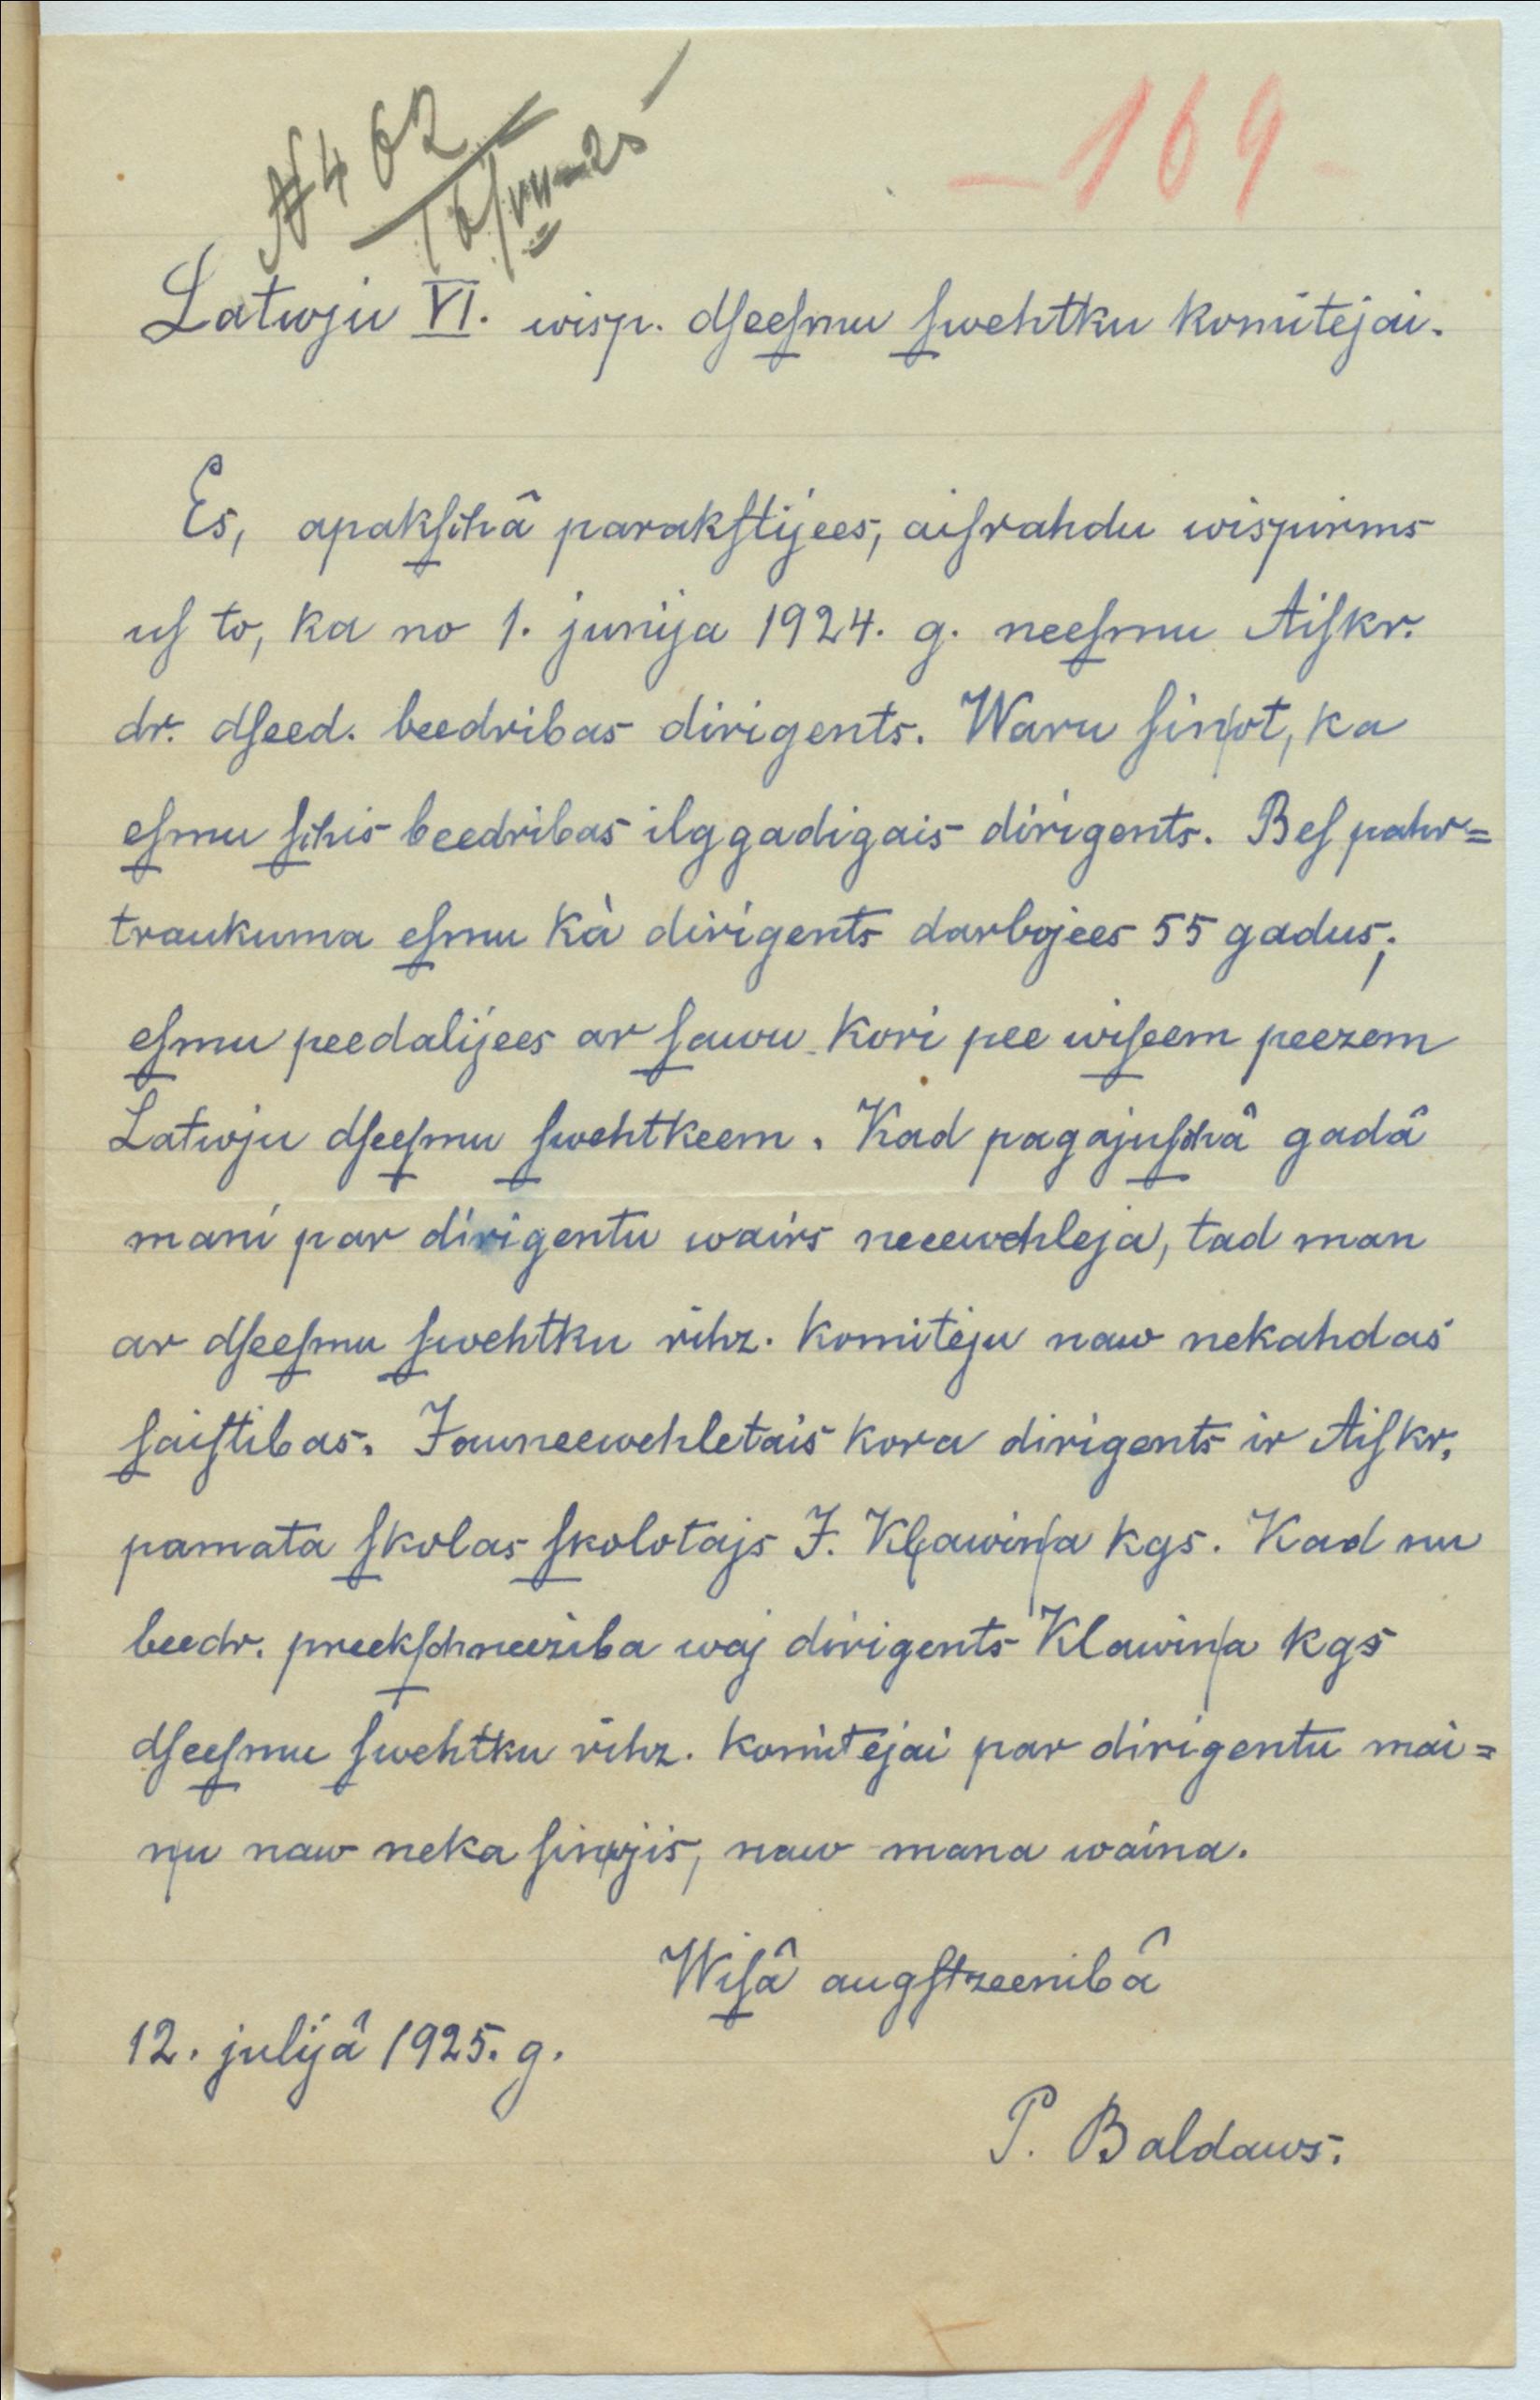 № 462
16/VII-25
–169–
Latwju VI. wisp. dſeeſmu ſwehtku komitejai.
Es, apakſchâ parakſtijees, aiſrahdu wispirms
uſ to, ka no 1. junija 1924. g. neeſmu Aiſkr.
dr. dſeed. beedribas dirigents. Waru ſiņot, ka
eſmu ſchis beedribas ilggadigais dirigents. Beſ pahr=
traukuma eſmu kà dirigents darbojees 55 gadus;
eſmu peedalijees ar ſawu kori pee wiſeem peezem
Latwju dſeeſmu ſwehtkeem. Kad pagajuſchâ gadâ
mani par dirigentu wairs neeewehleja, tad man
ar dſeeſmu ſwehtku rihz. komiteju naw nekahdas
ſaiſtibas. Jauneewehletais kora dirigents ir Aiſkr.
pamata ſkolas ſkolotajs J. Kļawiņa kgs. Kad nu
beedr. preekſchneeziba waj dirigents Klawiņa kgs
dſeeſmu ſwehtku rihz. komitejai par dirigentu mai=
ņu naw neka ſiņojis, naw mana waina.
Wiſâ augſtzeenibâ
12. julijâ 1925. g.
P. Baldaws.